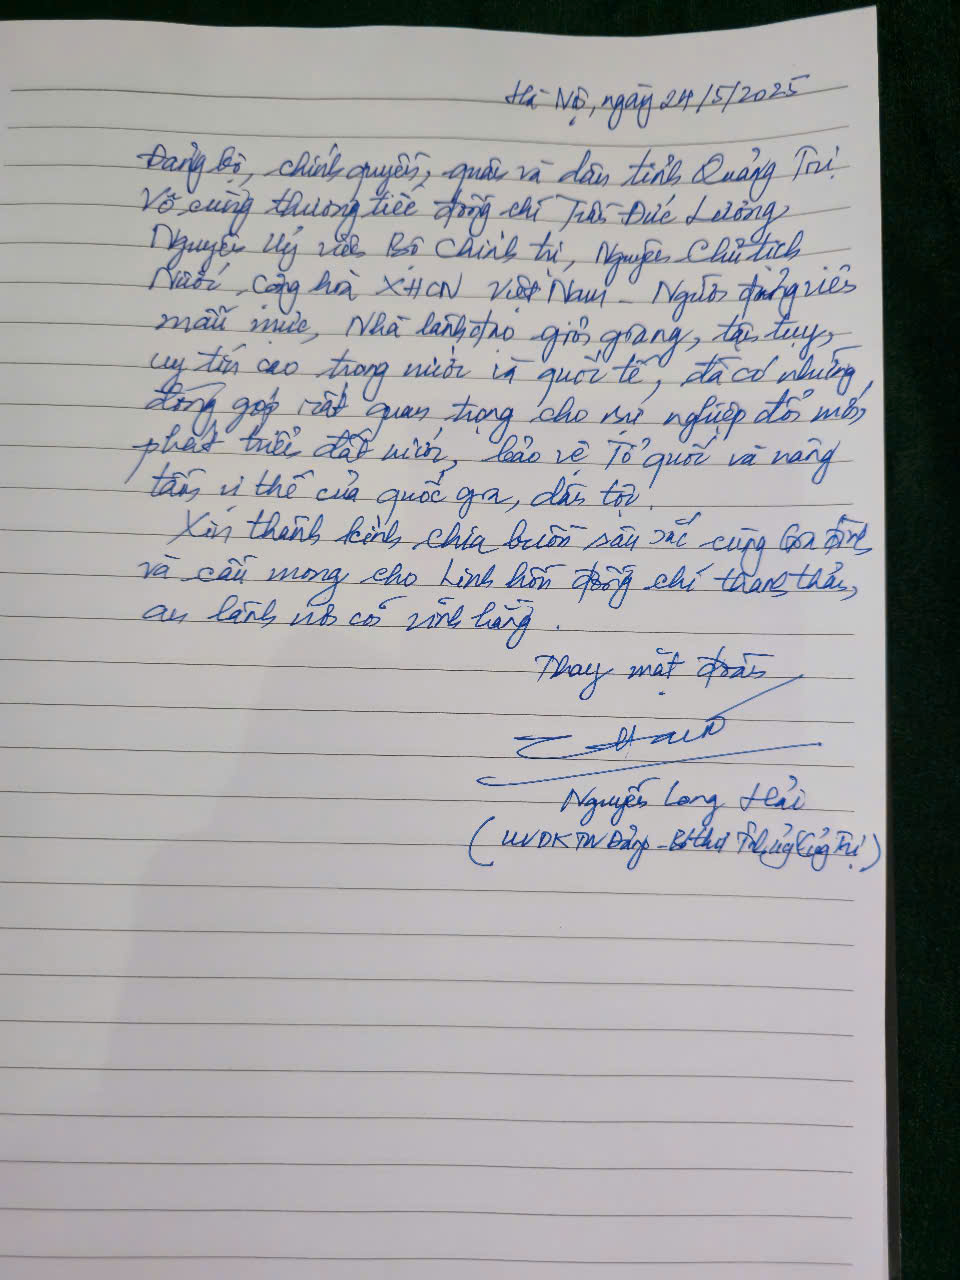 Hà Nội, ngày 24/5/2025
Đảng bộ, chính quyền, quân và dân tỉnh Quảng Trị
Vô cùng thương tiếc đồng chí Trần Đức Lương,
Nguyên Uỷ viên Bộ Chính trị, Nguyên Chủ tịch
Nước, Cộng hoà XHCN Việt Nam - Người đảng viên
mẫu mực, Nhà lãnh đạo giỏi giang, tận tụy,
uy tín cao trong nước và quốc tế, đã có những
đóng góp rất quan trọng cho sự nghiệp đổi mới
phát triển đất nước, bảo vệ Tổ quốc và nâng
tầm vị thế của quốc gia, dân tộc.
Xin thành kính chia buồn sâu sắc cùng Gia đình
và cầu mong cho Linh hồn đồng chí thanh thản,
an lành nơi cõi vĩnh hằng.
Thay mặt đoàn
Nguyễn Long Hải
(UVDKTW Đảng - Bí thư Tỉnh ủy Quảng Trị)